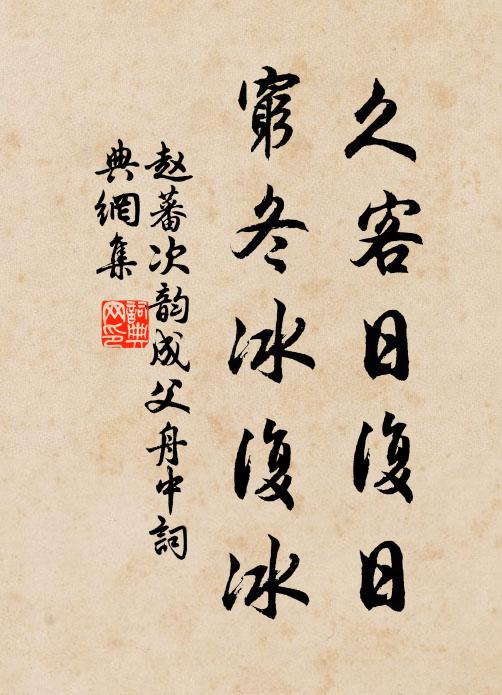 久客日復日
窮冬冰復冰
赵蕃次韵成父舟中詞
典網集
詞典网印